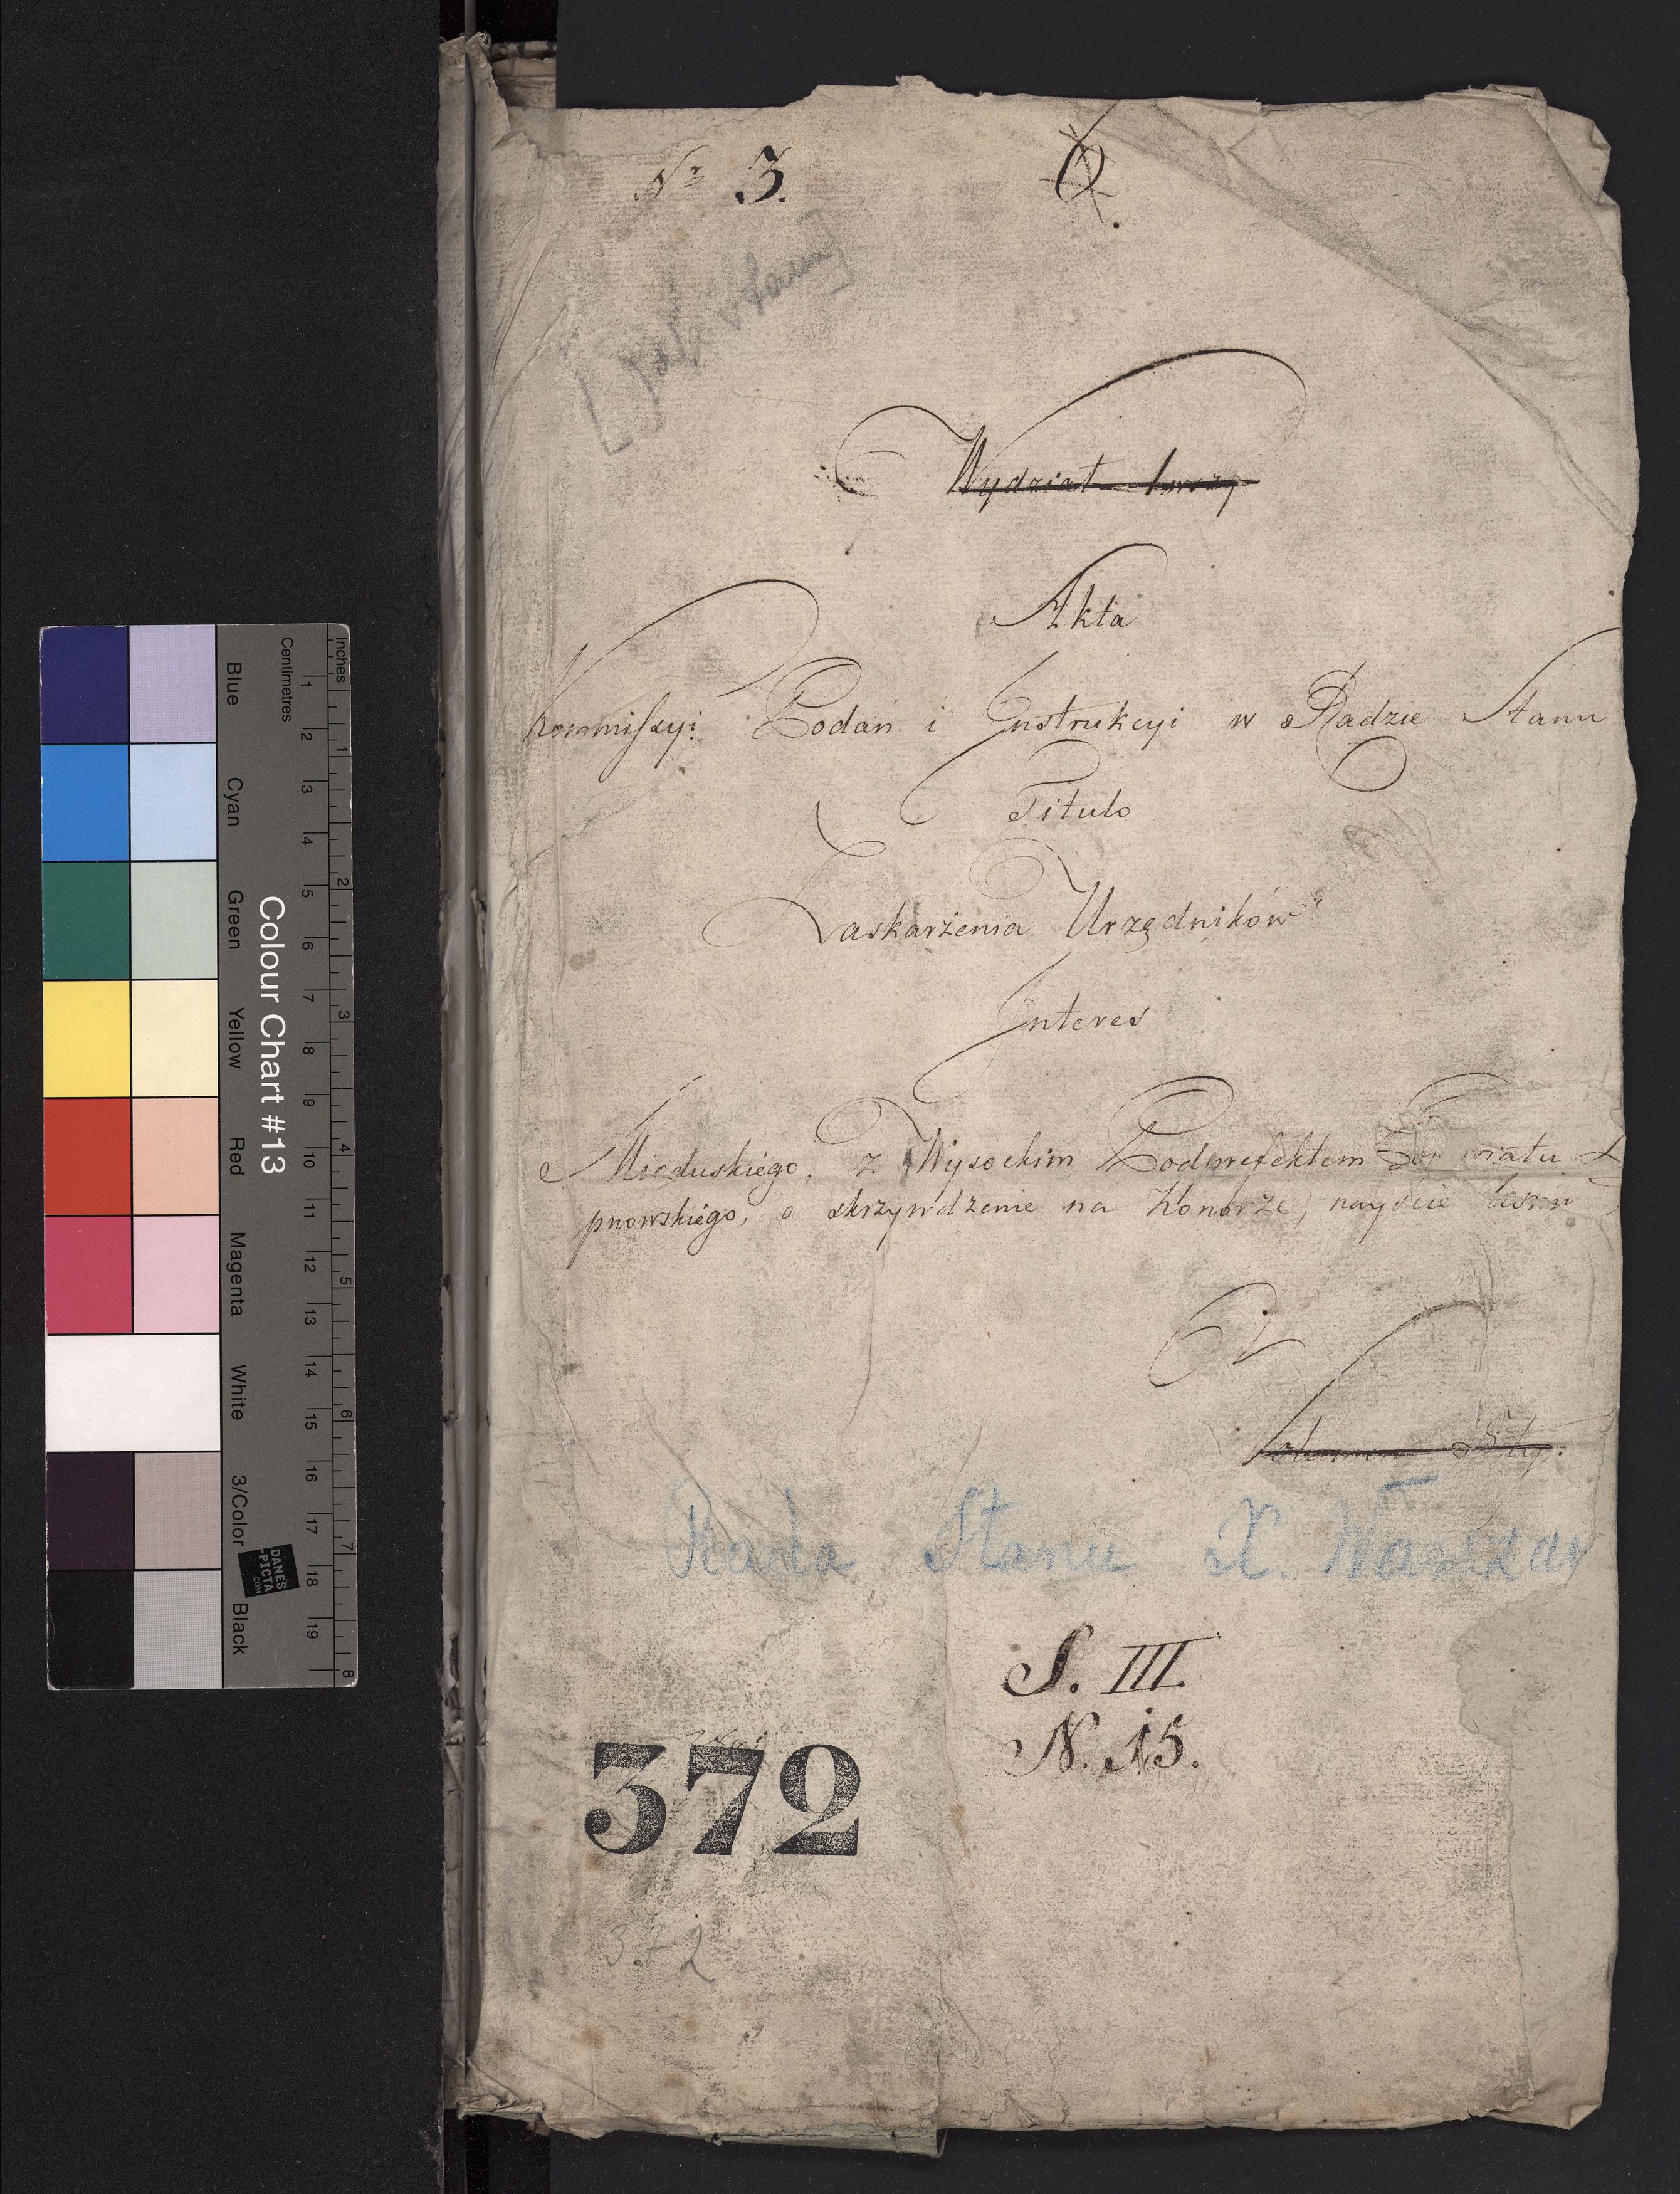 Nr 3.
Wydział
Akta
Kommissyi Podań i Instrukcyi w Radzie Stanu
Titulo
Zaskarżenia Urzędników
Interes
Mieduskiego, z Wysockim Podprefektem Powiatu Li
pnowskiego, o skrzywdzenie na Honorze, nayście
Volumen
Rada Stanu X. Warszaw
S. III.
N. 15.
372
372
Colour Chart #13
Blue Cyan Green Yellow Red Magenta White 3/Color Black
Centimetres 1 2 3 4 5 6 7 8 9 10 11 12 13 14 15 16 17 18 19
Inches 1 2 3 4 5 6 7 8
DANES
PICTA
.COM